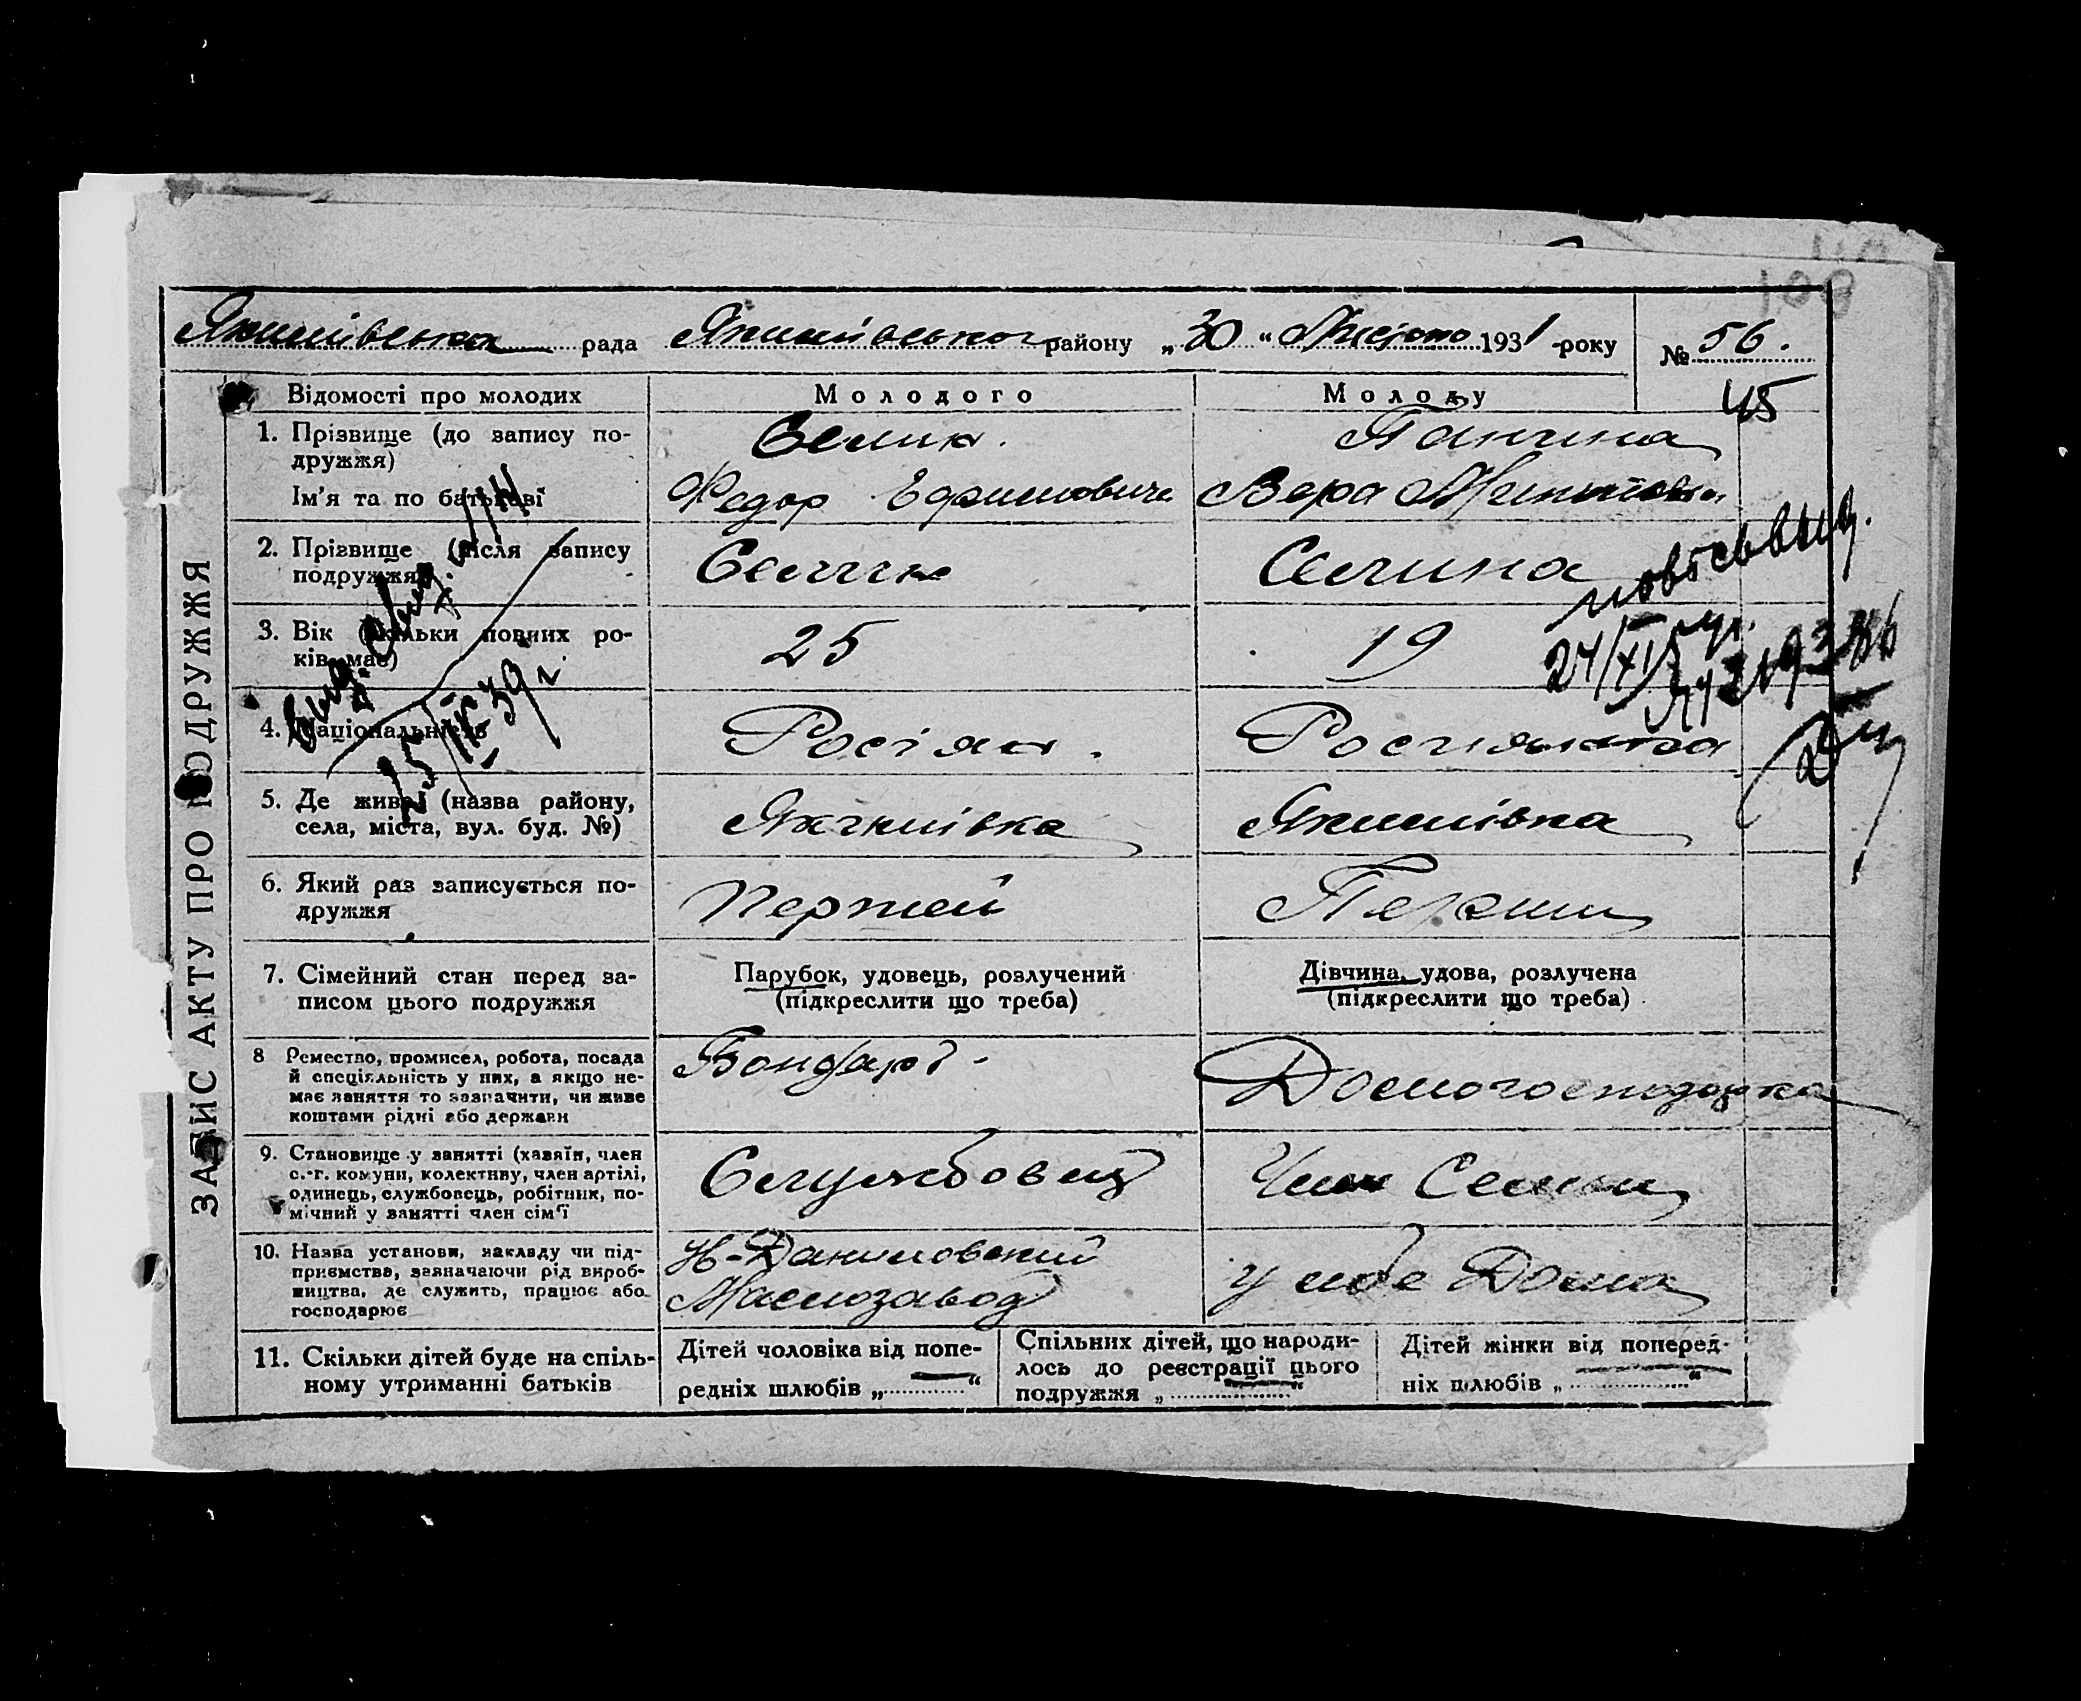 Якимівська рада Якимівського району „30“ Листопо 1931 -року № 56.
45
Відомості про молодих Молодого Молоду
1. Прізвище (до запису подружжя) Селин. Панчина
Ім'я та по батькові Федор Ефимович Вера
2. Прізвище (після запису Селин Селина
подружжя)
3. Вік (скільки повних ро- 25 19
ків має)
4. Національність Росіян. Росиянка
5. Де живе (назва району, Якимівка Якимівка
села, міста, вул. буд. №)
6. Який раз записується по- Перший Перший
дружжя
7. Сімейний стан перед за- Парубок, удовець, розлучений Дівчина, удова, розлучена
писом цього подружжя (підкреслити що треба) (підкреслити що треба)
8 Ремество, промисел, робота, посада Бондарь - Домогосподарка
й спеціяльність у них, а якщо не-
має заняття то зазначити, чи живе
коштами рідні або держави
9. Становище у занятті (хазяїн, член Службовец Член Семьи
с.-г. комуни, колективу, член артілі,
одинець, службовець, робітник, по-
мічний у занятті член сім'ї
10. Назва установи, закладу чи під- Н-Даниловский у себе Дома
приємства, зазначаючи рід вироб- Маслозавод
ництва, де служить, працює або
господарює
11. Скільки дітей буде на спіль- Дітей чоловіка від попе- Спільних дітей, що народи- Дітей жінки від поперед-
ному утриманні батьків редніх шлюбів „ — “ лось до реєстрації цього ніх шлюбів „ — “
подружжя „ — “
ЗАПИС АКТУ ПРО ПОДРУЖЖЯ